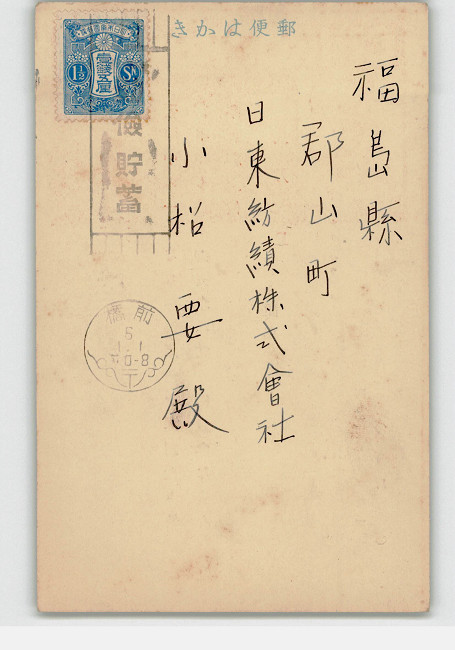 郵便はかき
福島縣
郡山町
日東紡績株式會社
小松 要 殿
大日本帝國郵便
壹錢五厘
1½ Sn
儉貯蓄
前橋
5
1.1
0-8